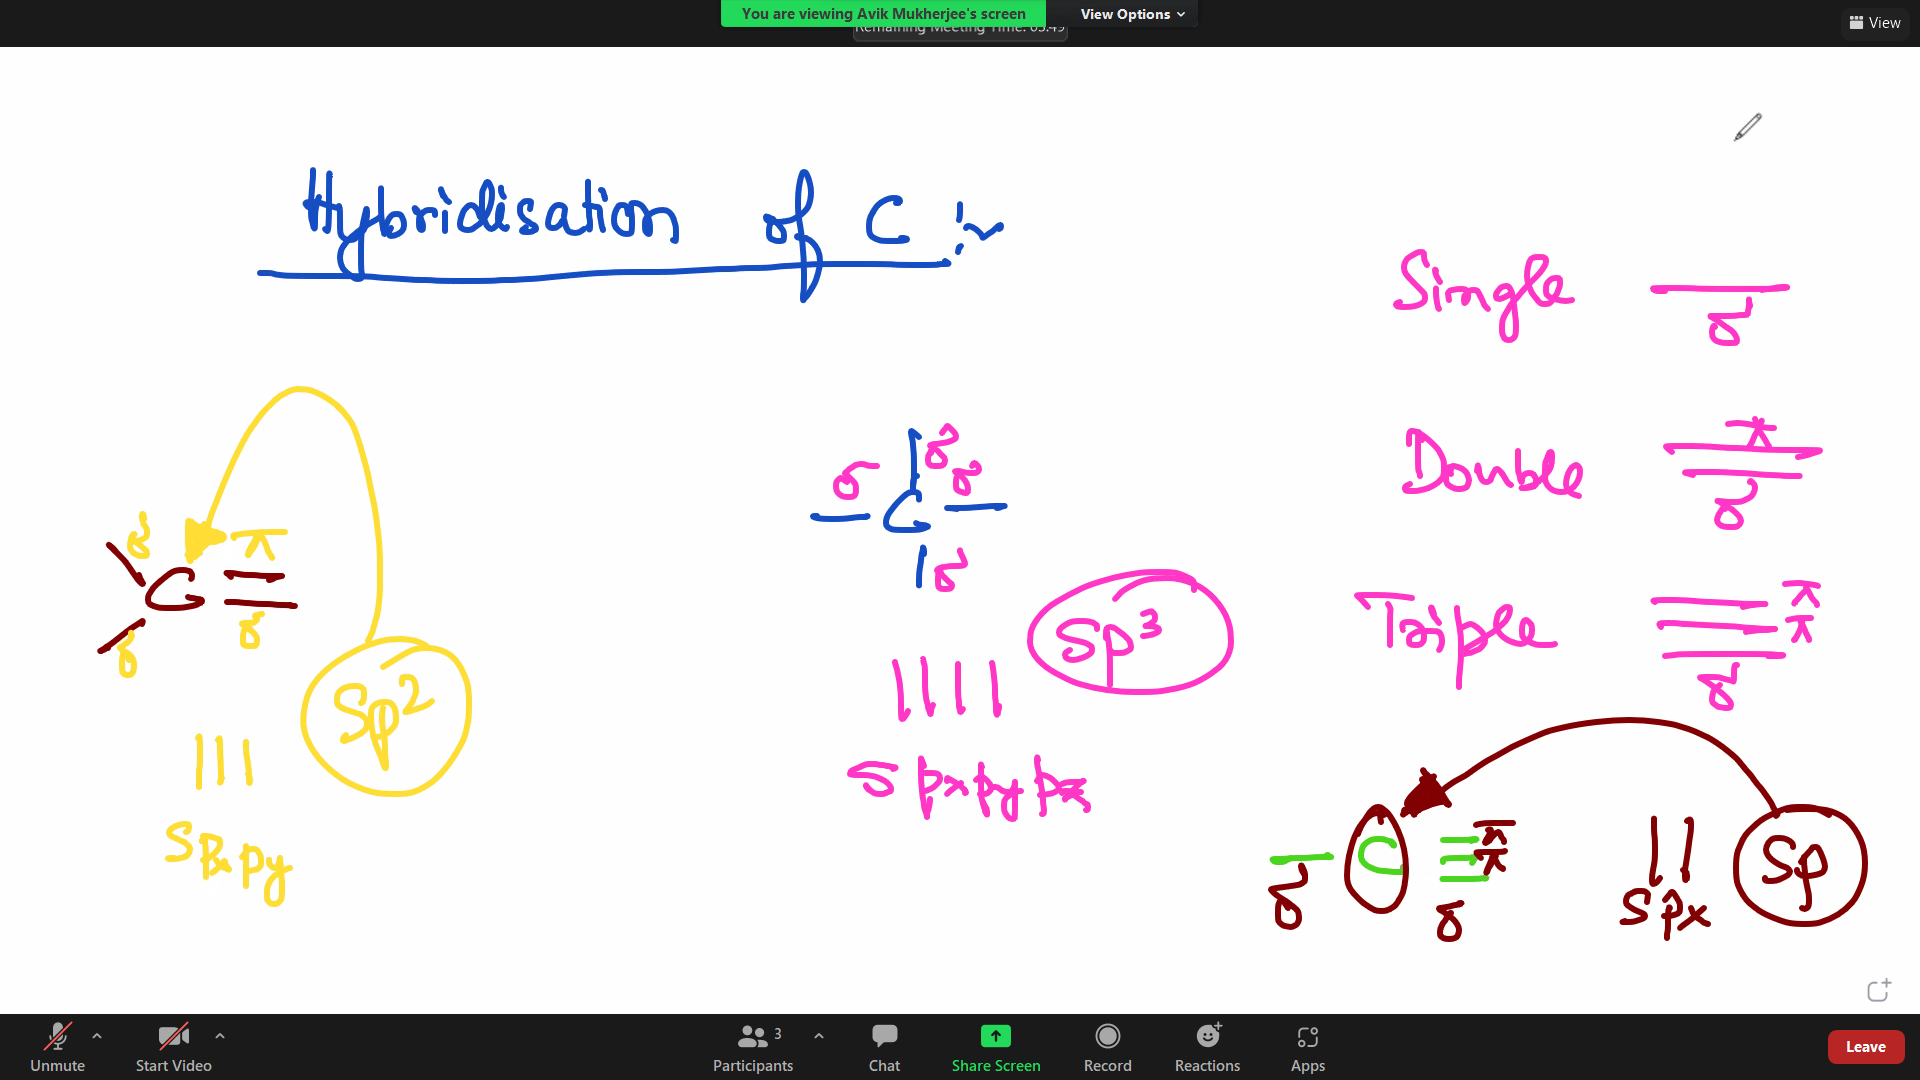 You are viewing Avik Mukherjee's screen
View Options
Remaining Meeting Time: 03:49
View
Hybridisation of C :~
Single σ
Double π
σ
Triple π
π
σ
σ π
C
σ σ
sp²
|||
s px py
σ σ σ
C
σ
sp³
||||
s px py pz
σ C π
π
σ
||
s px
sp
Unmute
Start Video
Participants 3
Chat
Share Screen
Record
Reactions
Apps
Leave